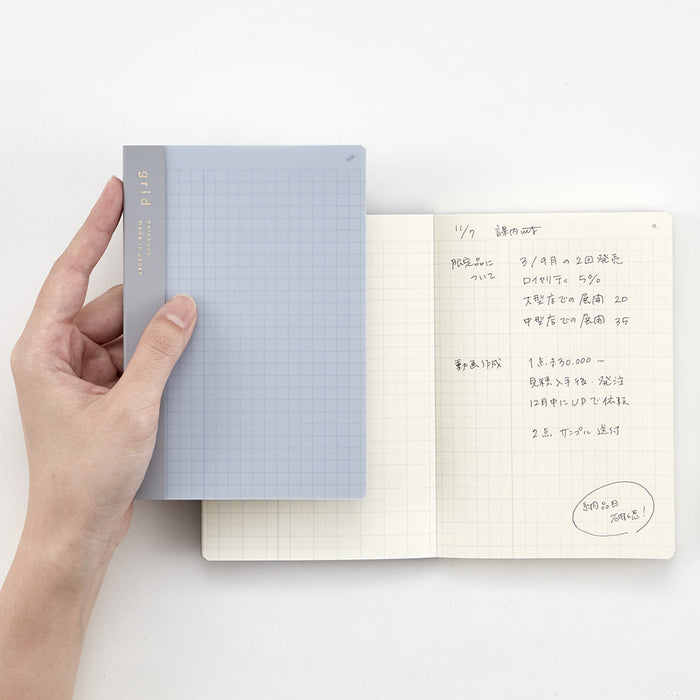 grid
notebook
made in Japan
11/7 課内mtg
限定品に
ついて
3/9月の2回発売
ロイヤリティ 5%
大型店での展開 20
中型店での展開 35
動画作成
1点¥30.000～
見積入手後、発注
12月中にUPで依頼
2点 サンプル送付
納品日
確認!